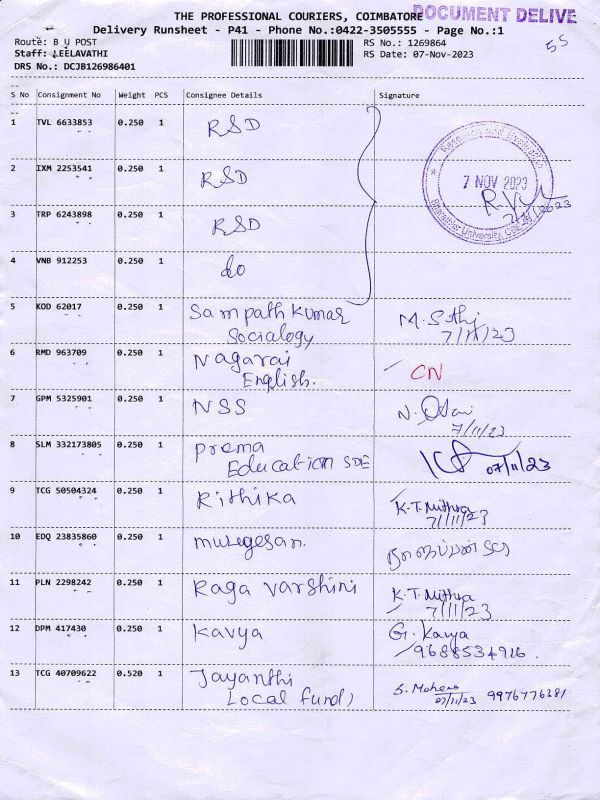 DOCUMENT DELIVE
THE PROFESSIONAL COURIERS, COIMBATORE
Delivery Runsheet - P41 - Phone No.:0422-3505555 - Page No.:1
Route: B U POST
Staff: LEELAVATHI
DRS No.: DCJB126986401
RS No.: 1269864
RS Date: 07-Nov-2023
55
S No Consignment No Weight PCS Consignee Details Signature
1 TVL 6633853 0.250 1 RSD
Research and Development
7 NOV 2023
Bharathiar University, CBE
7/11/2023
2 IXM 2253541 0.250 1 RSD
3 TRP 6243898 0.250 1 RSD
4 VNB 912253 0.250 1 do
5 KOD 62017 0.250 1 Sampath Kumar
Socialogy
7/11/23
6 RMD 963709 0.250 1 Nagarai
English.
CN
7 GPM 5325901 0.250 1 NSS
7/11/23
8 SLM 332173805 0.250 1 prema
Education SDE
07/11/23
9 TCG 50504324 0.250 1 Rithika K.T. Mithra
7/11/23
10 EDQ 23835860 0.250 1 murugesan.
11 PLN 2298242 0.250 1 Raga varshini K.T. Mithra
7/11/23
12 DPM 417430 0.250 1 Kavya G. Kavya
9688534916.
13 TCG 40709622 0.520 1 Jayanthi
Local fund) 07/11/23 9976776381